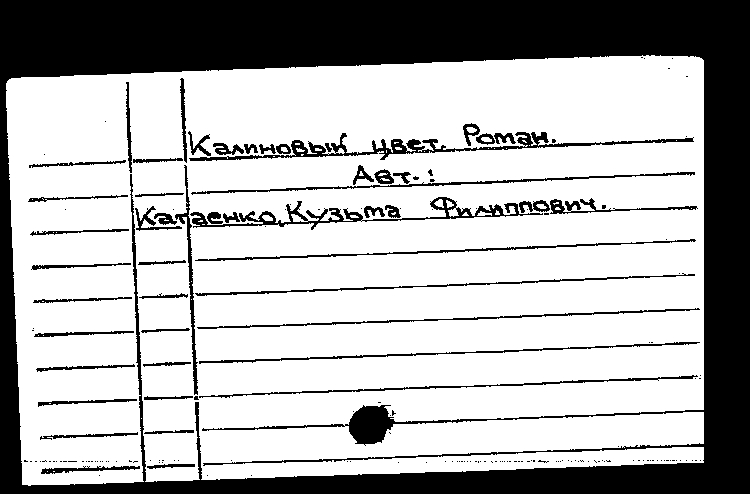 Калиновый цвет. Роман.
Авт.:
Катаенко, Кузьма Филиппович.